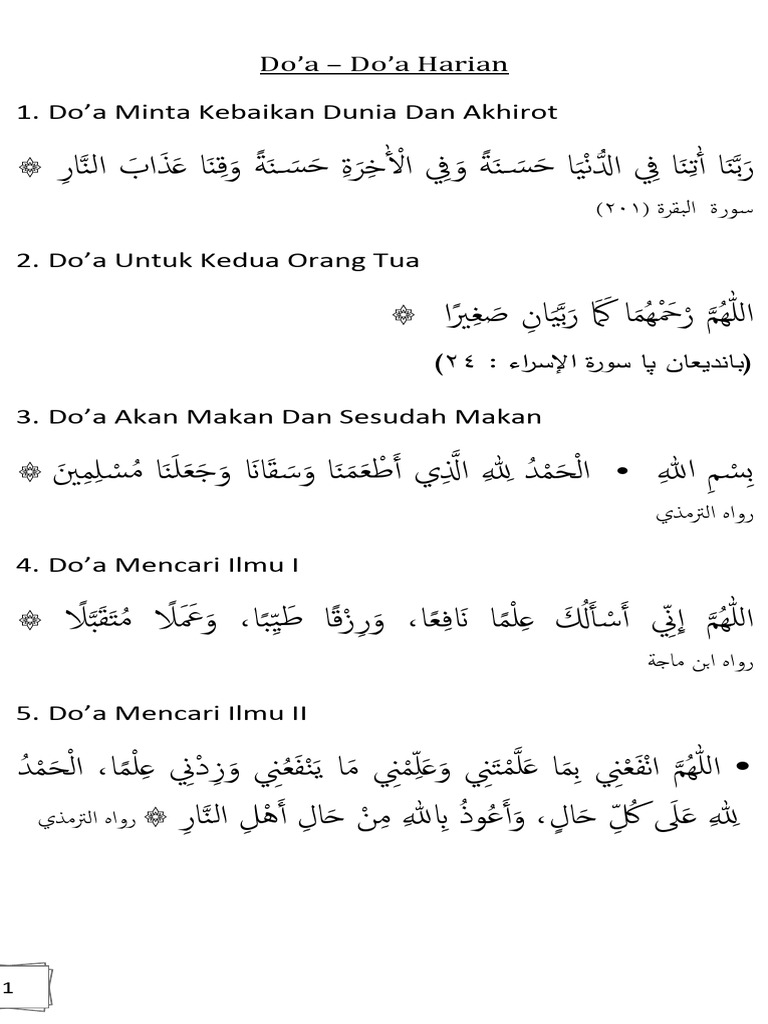 Do’a – Do’a Harian
1. Do’a Minta Kebaikan Dunia Dan Akhirot
رَبَّنَا أٰتِنَا فِي الدُّنْيَا حَسَنَةً وَفِي الْأٰخِرَةِ حَسَنَةً وَقِنَا عَذَابَ النَّارِ ۞
سورة البقرة (٢٠١)
2. Do’a Untuk Kedua Orang Tua
اللّٰهُمَّ رْحَمْهُمَا كَمَا رَبَّيَانِ صَغِيرًا ۞
(بانديعان ڽا سورة الإسراء : ٢٤)
3. Do’a Akan Makan Dan Sesudah Makan
بِسْمِ اللهِ • الْحَمْدُ لِلهِ الَّذِي أَطْعَمَنَا وَسَقَانَا وَجَعَلَنَا مُسْلِمِينَ ۞
رواه الترمذي
4. Do’a Mencari Ilmu I
اللّٰهُمَّ إِنِّي أَسْأَلُكَ عِلْمًا نَافِعًا، وَرِزْقًا طَيِّبًا، وَعَمَلًا مُتَقَبَّلًا ۞
رواه ابن ماجة
5. Do’a Mencari Ilmu II
• اللّٰهُمَّ انْفَعْنِي بِمَا عَلَّمْتَنِي وَعَلِّمْنِي مَا يَنْفَعُنِي وَزِدْنِي عِلْمًا، الْحَمْدُ
لِلهِ عَلَى كُلِّ حَالٍ، وَأَعُوذُ بِاللهِ مِنْ حَالِ أَهْلِ النَّارِ ۞ رواه الترمذي
1